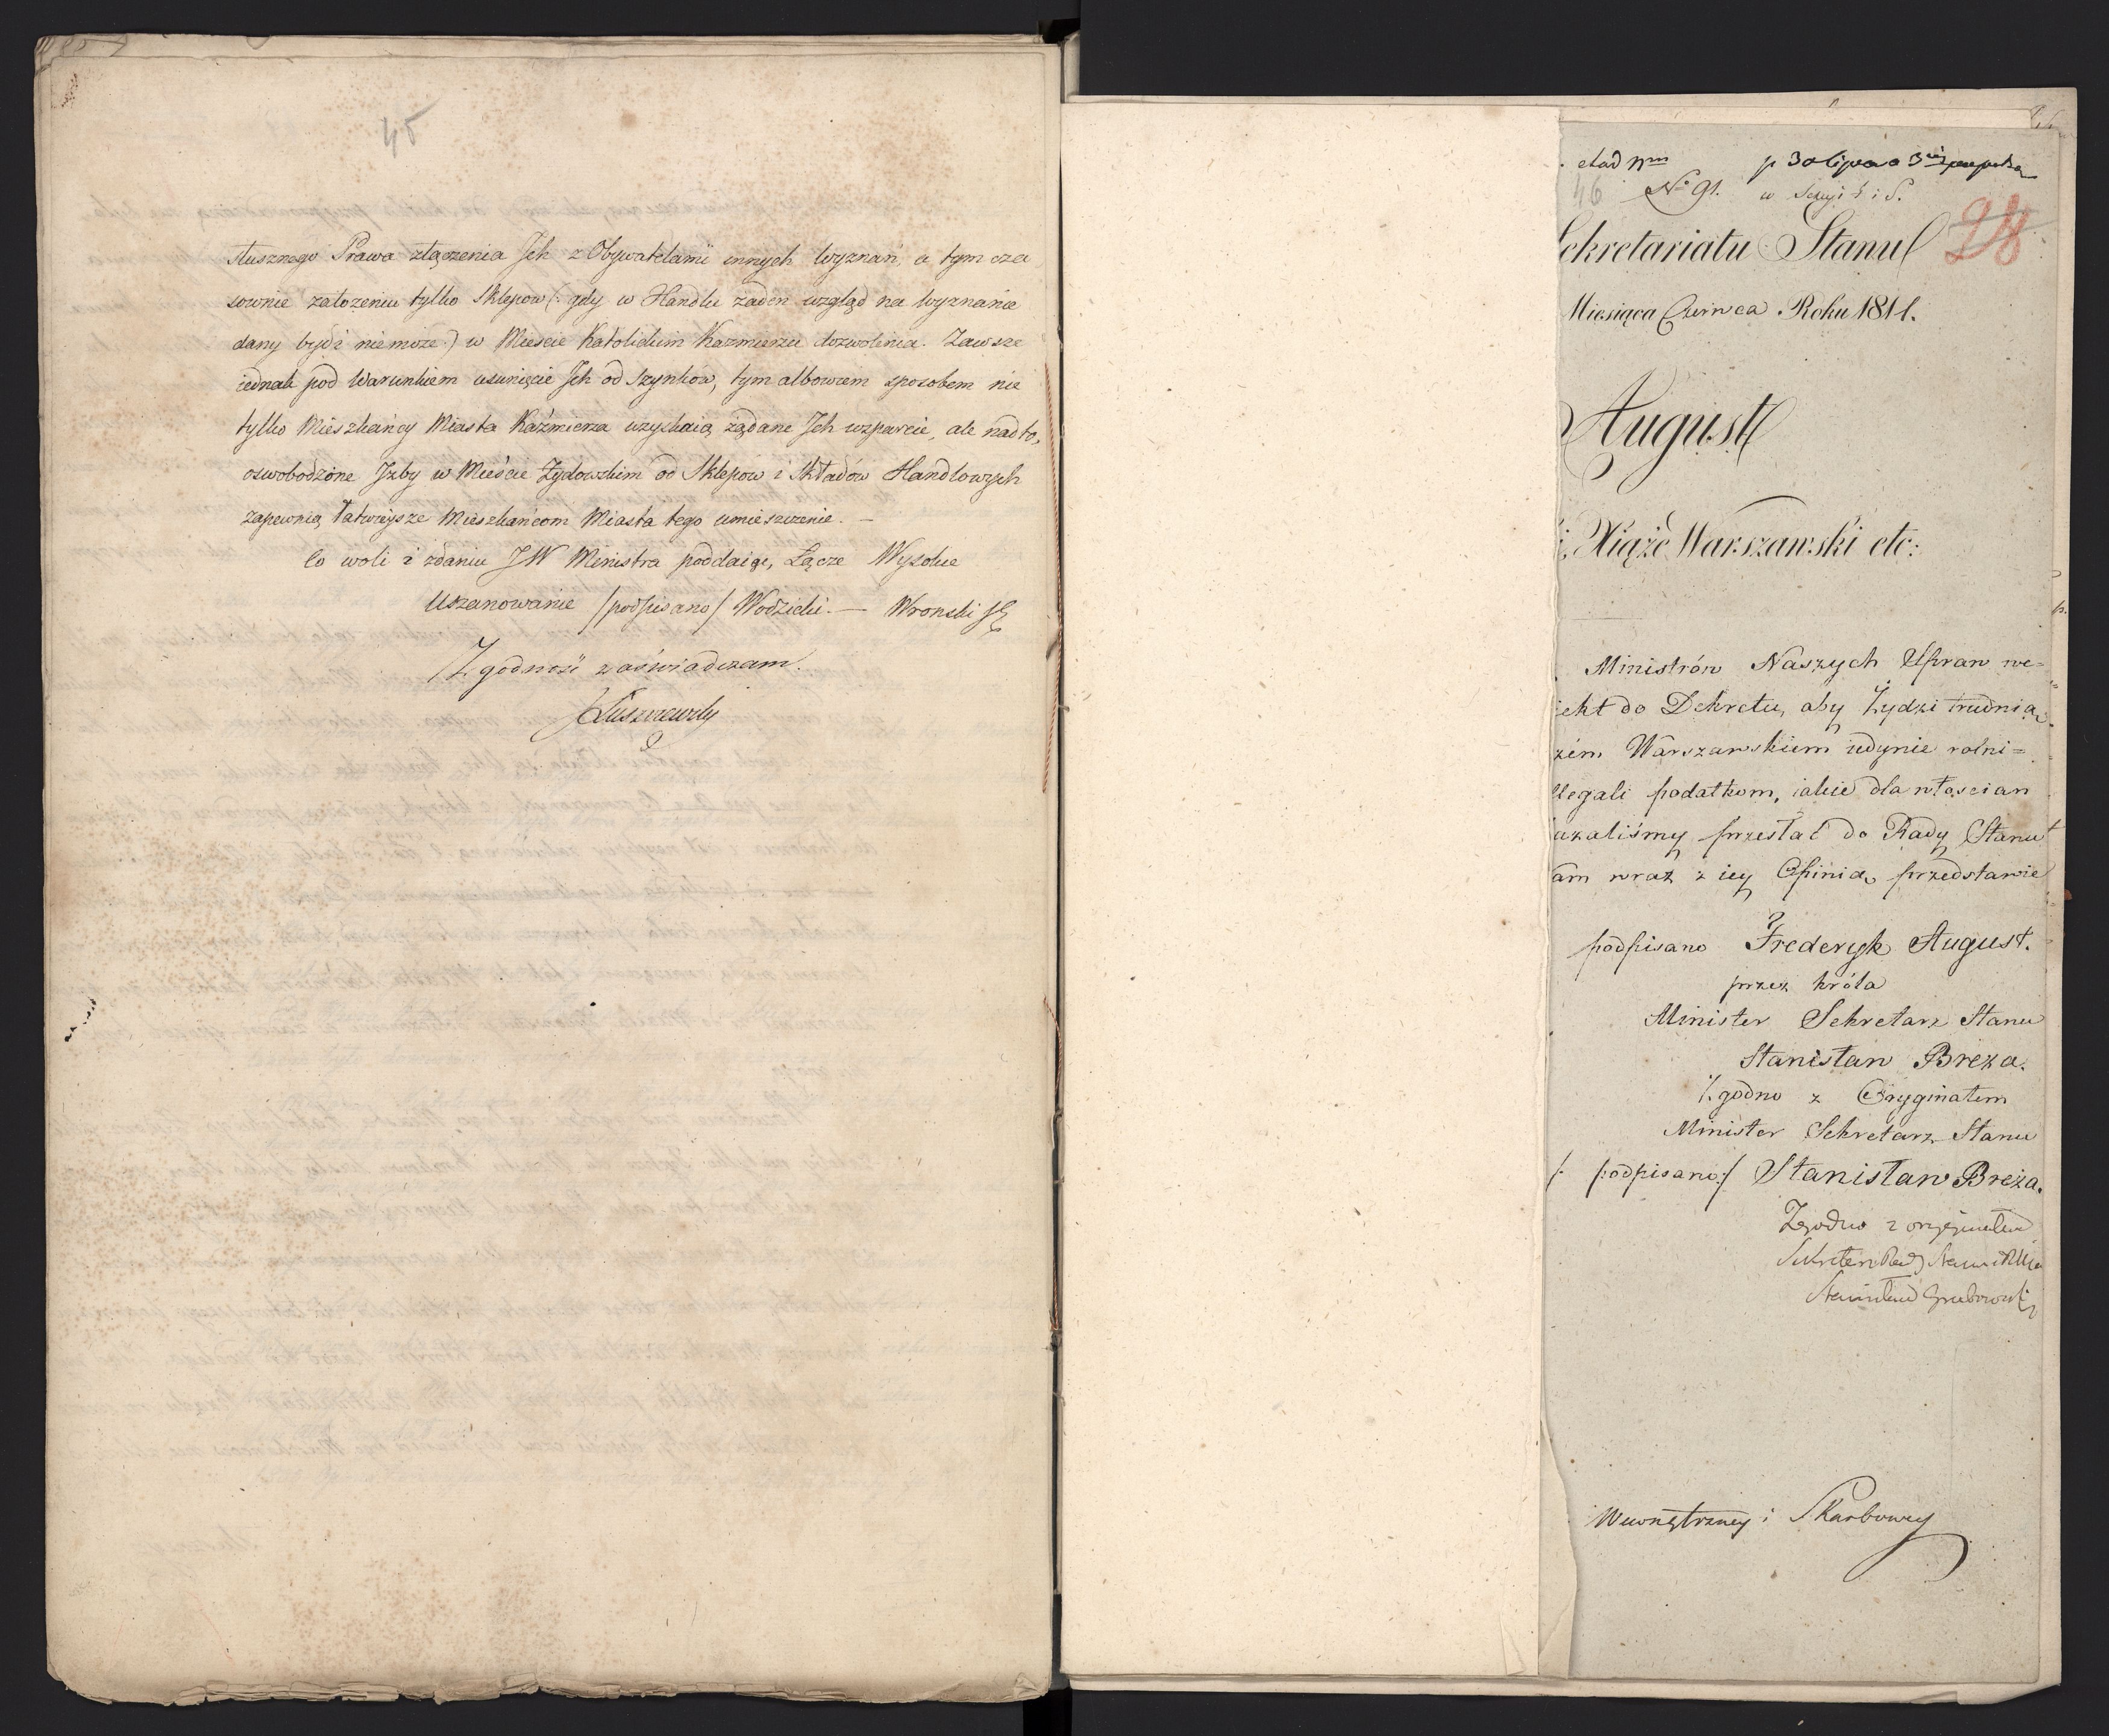 45
słusznego Prawa złączenia Jch z Obywatelami innych Wyznań, a tym cza
sownie założeniu tylko Sklepow (: gdy w Handlu żaden wzgląd na wyznanie
dany bydź niemoże :) w Mieście Katolickim Kazmierzu dozwolenia. Zawsze
iednak pod Warunkiem usunięcie Jch od Szynków, tym albowiem sposobem nie
tylko Mieszkańcy Miasta Kaźmierza uzyskaią żądane Jch wsparcie, ale nadto,
oswobodzone Jzby w Mieście Żydowskim od Sklepow i Składów Handlowych
zapewnią łatwieysze Mieszkańcom Miasta tego umieszczenie. —
Co woli i zdaniu JW Ministra poddaiąc, Łącze Wysokie
Uszanowanie /podpisano/ Wodzicki. — Wronski SG
Zgodność zaświadczam.
Łuszczewski
46
No 91.
28
ekretariatu Stanu
Miesiąca Czerwca Roku 1811.
August
Xiąże Warszawski etc:
Ministrów Naszych Spraw we=
iekt do Dekretu, aby Żydzi trudnią
zém Warszawskiem iedynie rolni=
llegali podatkom, iakie dla włościan
azaliśmy przesłać do Rady Stanu
am wraz z iey Opinią przedstawie
podpisano Frederyk August.
przez króla
Minister Sekretarz Stanu
Stanisław Breza.
Zgodno z Oryginałem
Minister Sekretarz Stanu
/: podpisano :/ Stanisław Breza.
Zgodno z oryginałem
Sekretarz Rady Stanu
Stanisław Grabowski
Wewnętrzney i Skarbowey